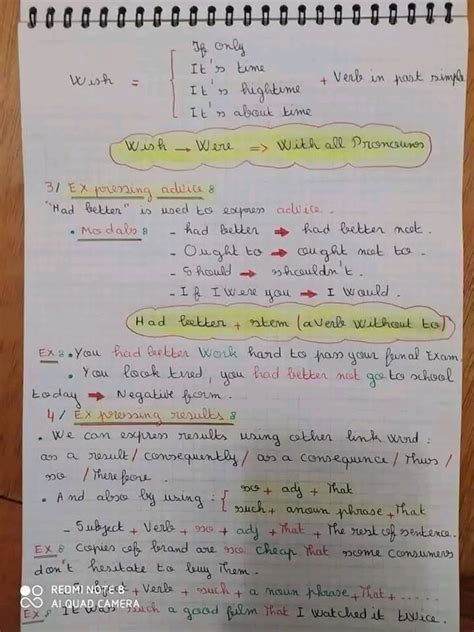 If only
It's time
Wish = + Verb in past simple
It's hightime
It's about time
Wish → Were => With all Pronouns
3/ Expressing advice :
"Had better" is used to express advice.
• Modals : - had better → had better not.
- Ought to → ought not to.
- Should → shouldn't.
- If I were you → I would.
Had better + stem (a verb without to)
Ex : • You had better work hard to pass your final Exam.
• You look tired, you had better not go to school
today → Negative form.
4/ Expressing results :
• We can express results using other link word :
as a result / consequently / as a consequence / Thus /
so / Therefore.
• And also by using : { so + adj + that
such + a noun phrase + that
- Subject + Verb + so + adj + that + The rest of sentence.
Ex : copies of brand are so cheap that some consumers
don't hesitate to buy them.
- Subject + Verb + such + a noun phrase + that + .....
Ex : It was such a good film that I watched it twice.
REDMI NOTE 8
AI QUAD CAMERA